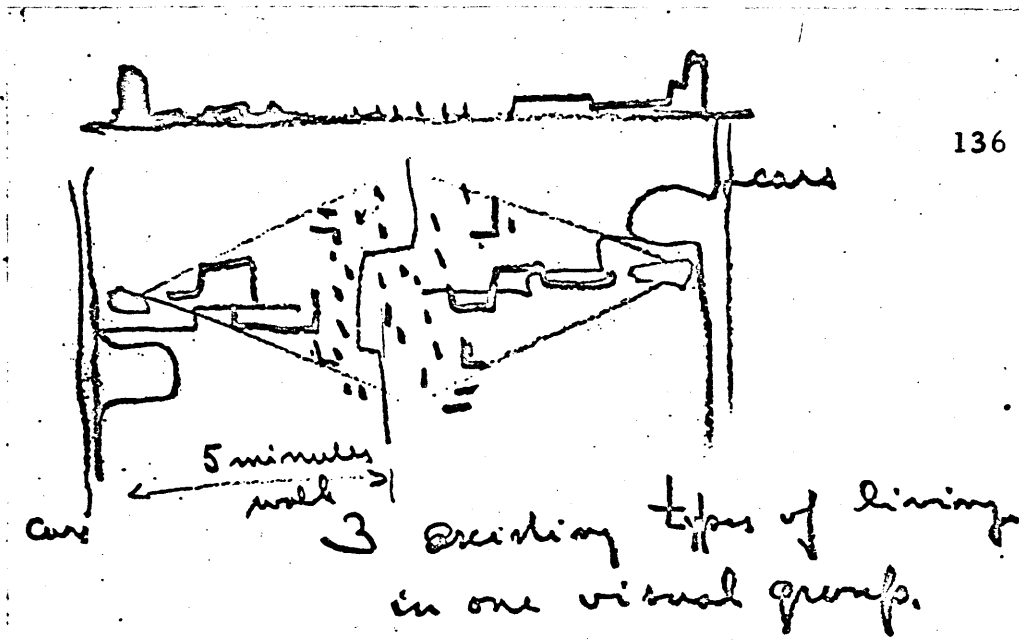 136
cars
5 minutes
walk
cars
3 existing types of living
in one visual group.